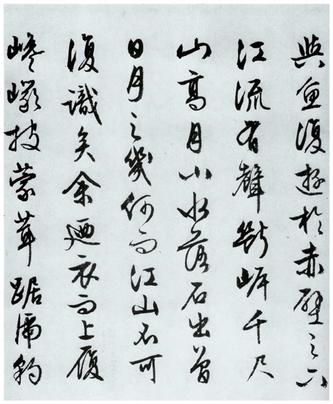 與魚復遊於赤壁之下
江流有聲斷岸千尺
山高月小水落石出曾
日月之幾何而江山不可
復識矣余迺衣而上履
巉巖披蒙茸踞虎豹